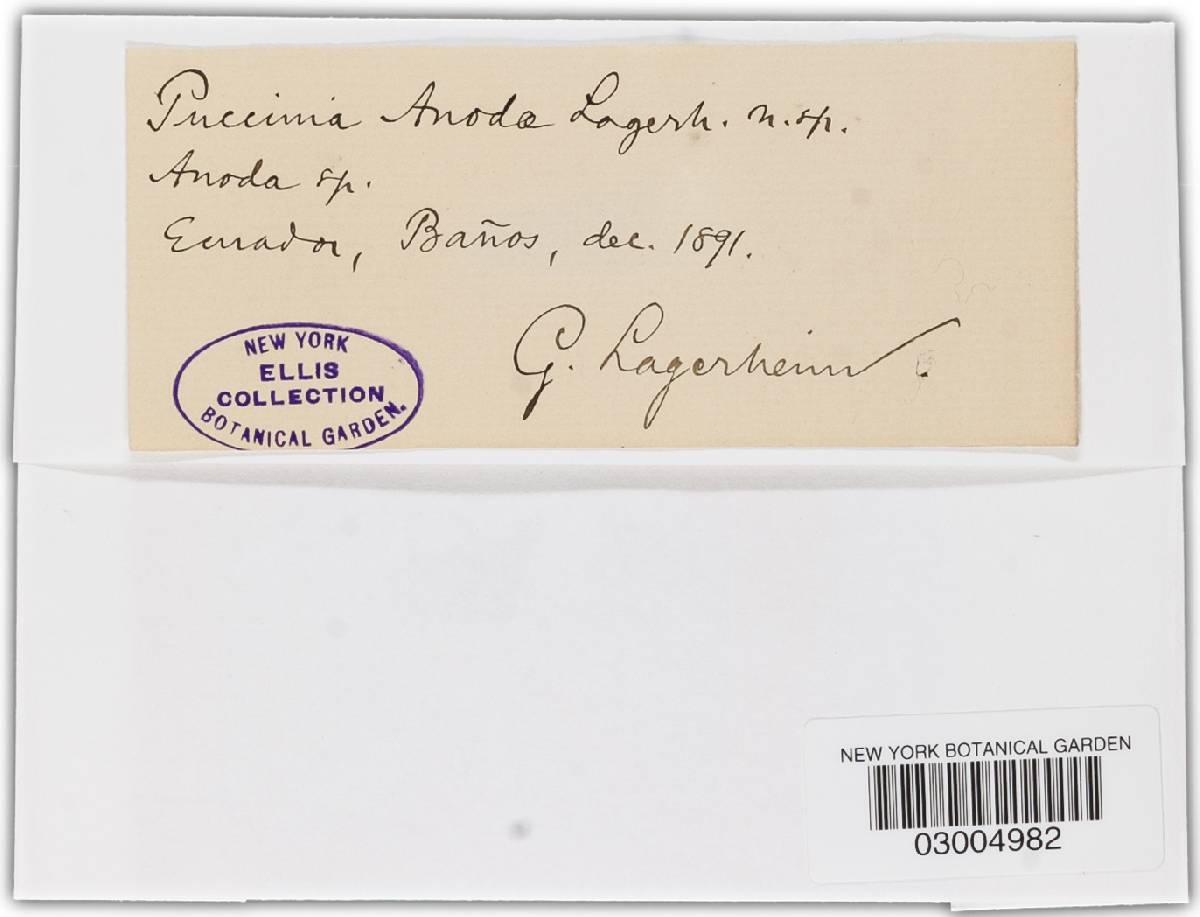 Puccinia Anodæ Lagerh. n. sp.
Anoda sp.
Ecuador, Baños, dec. 1891.
G. Lagerheim.
NEW YORK
ELLIS
COLLECTION
BOTANICAL GARDEN.
NEW YORK BOTANICAL GARDEN
03004982